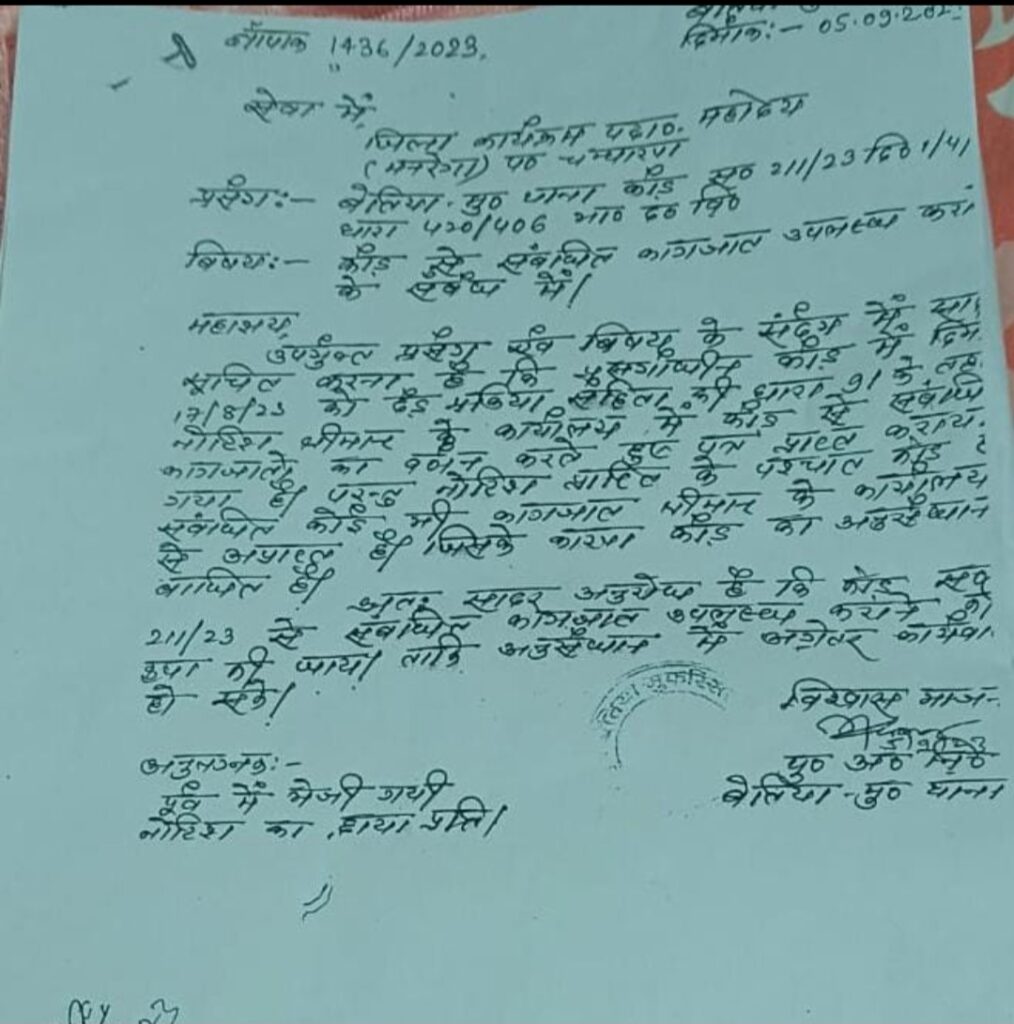 दिनांक:- 05.09.202
ज्ञापांक 1436/2023.
सेवा में,
जिला कार्यक्रम पदा०. महोदय
(मनरेगा) प० चम्पारण
प्रसंग:- बेतिया. मु० थाना कांड सं० 211/23 दि० 1/41
धारा 420/406 भा० द० वि०
विषय:- कांड से संबंधित कागजात उपलब्ध करा
के संबंध में।
महाशय,
उपर्युक्त प्रसंग एवं विषय के संदर्भ में सा
सूचित करना है कि प्रसंगाधीन कांड में दिनां
17/8/23 को दंड प्रकिया संहिता की धारा 91 के तह
नोटिश श्रीमान के कार्यालय में कांड से संबंधि
कागजातो का वर्णन करते हुए पत्र प्राप्त कराय
गया है। परन्तु नोटिश प्राप्ति के पश्चात कांड
संबंधित कोई भी कागजात श्रीमान के कार्यालय
से अप्राप्त है। जिसके कारण कांड का अनुसंधान
बाधित है।
अतः सादर अनुरोध है कि कांड सं०
211/23 से संबंधित कागजात उपलब्ध कराने की
कृपा की जाय। ताकि अनुसंधान में अग्रेतर कार्यवा
हो सके।
बेतिया मुफस्सिल
विश्वास भाज-
पु० अ० नि०
बेतिया-मु० थाना
अनुलग्नक:-
पूर्व में भेजी गयी
नोटिश का छाया प्रति।